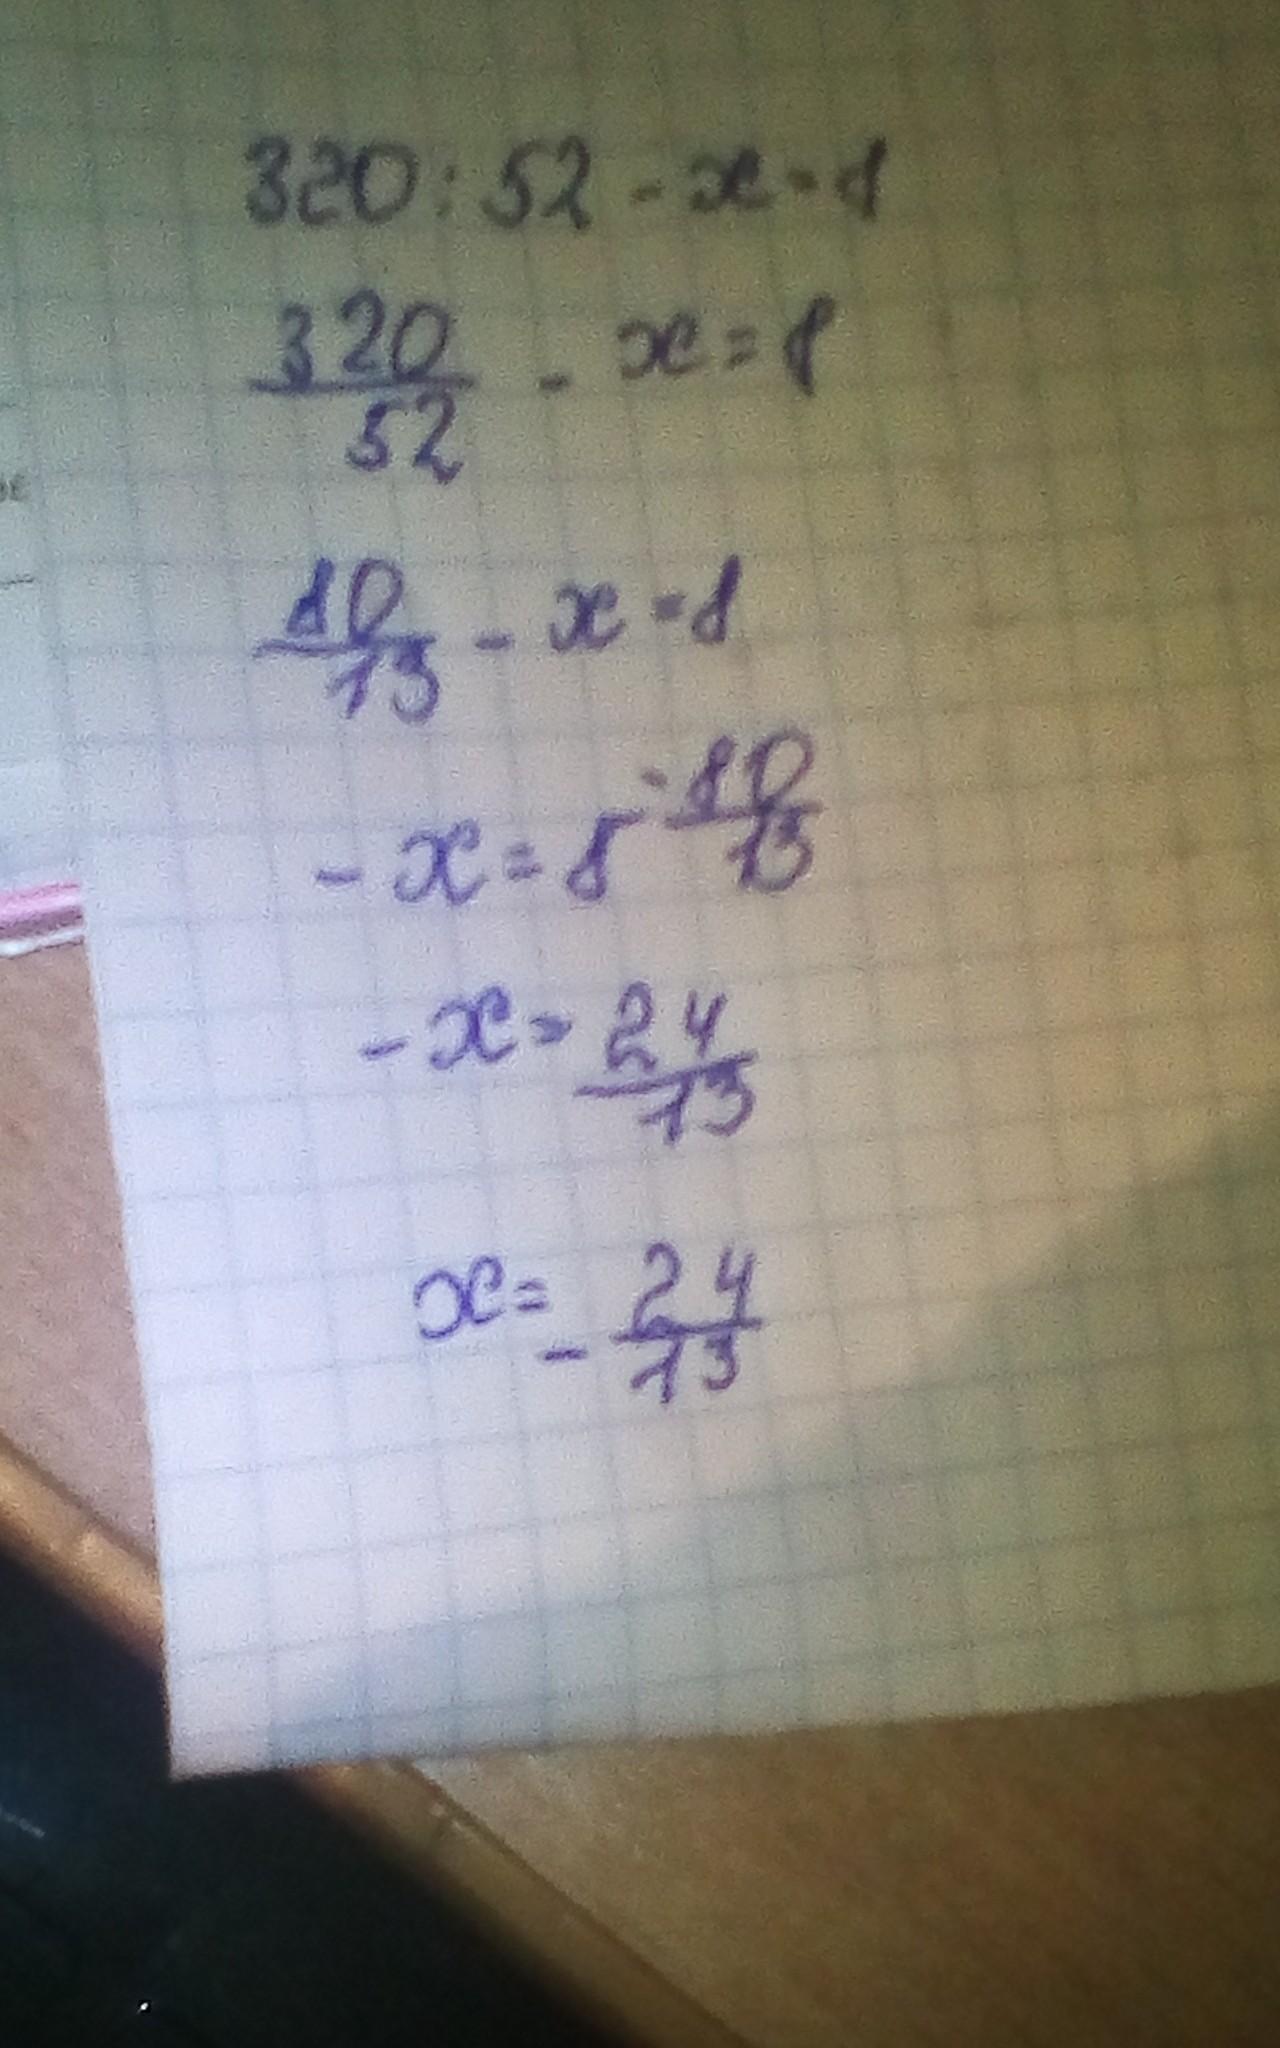 320:52-x=8
320/52 - x=8
80/13 - x=8
-x=8-80/13
-x=24/13
x=-24/13